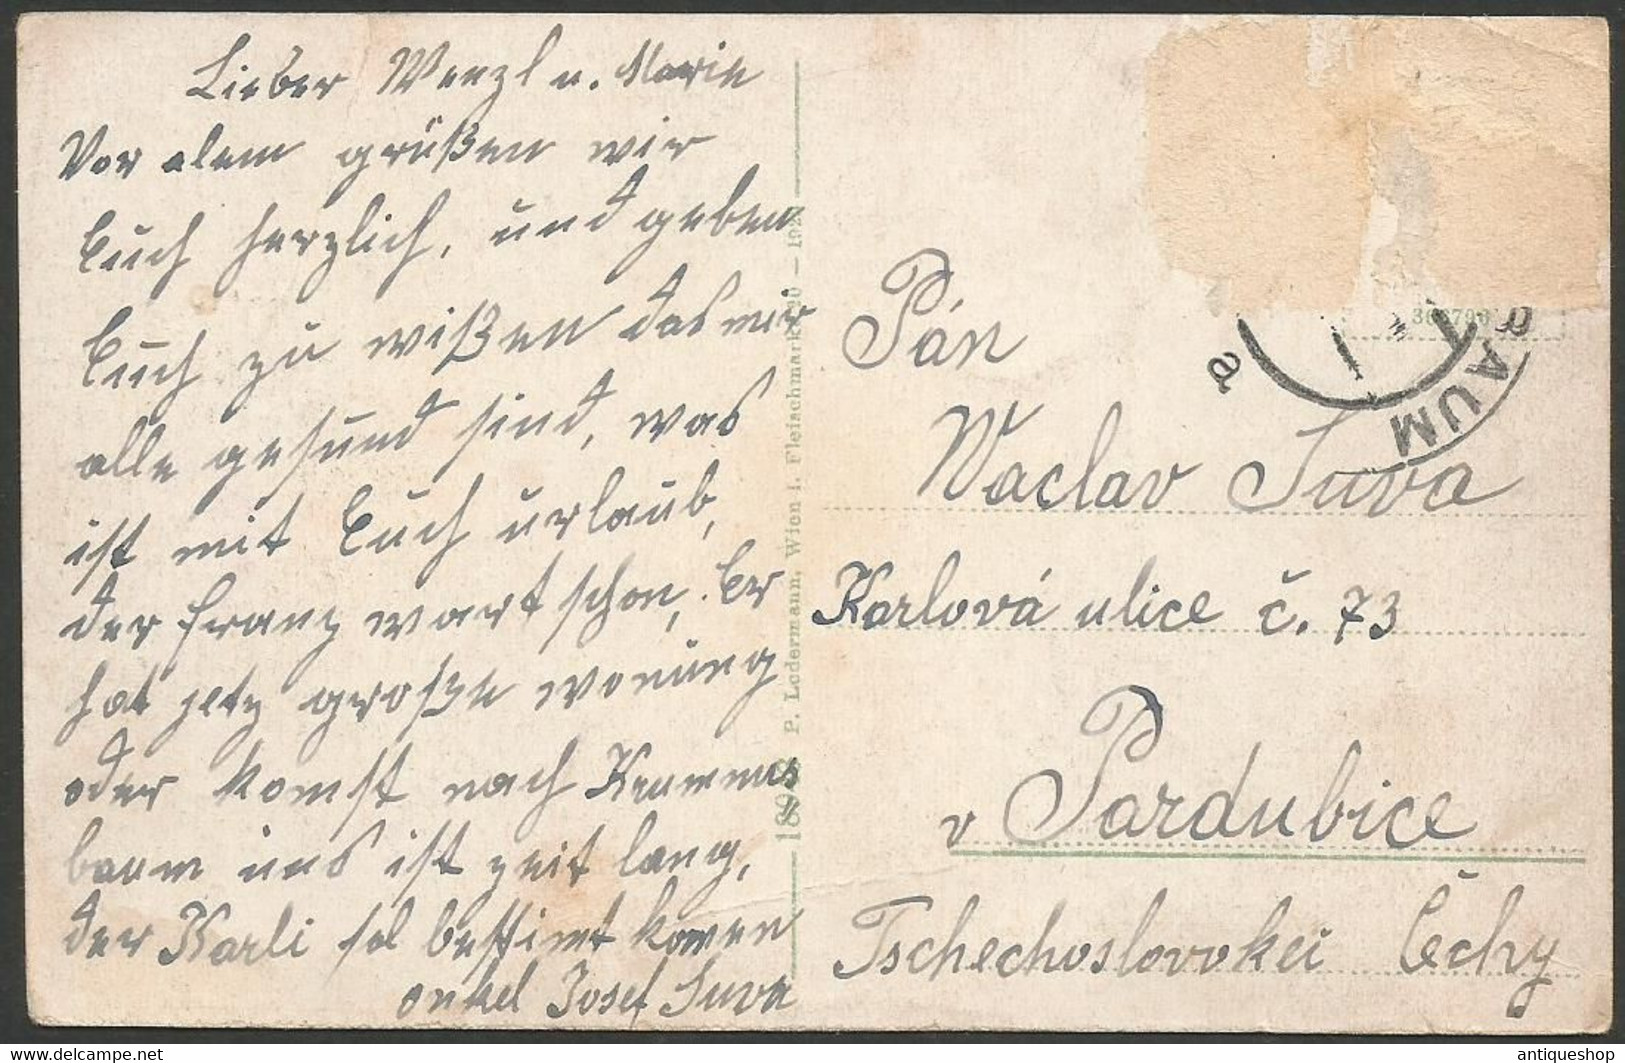 Lieber Wenzl u. Marie
Vor alem grüßen wir
Euch herzlich, und geben
Euch zu wißen das mir
alle gesund sind, was
ist mit Euch urlaub,
der Franz wart schon, Er
hat jetz große wonung
oder komst nach Krummus
baum uns ist zeit lang,
der Karli sol bestimt komen
onkel Josef Suva
P. Ledermann, Wien I. Fleischmarkt 20 — 192
Pán
Waclav Suva
Karlová ulice č. 73
v Pardubice
Tschechoslovakei Čechy
BAUM
a
antiqueshop
www.delcampe.net